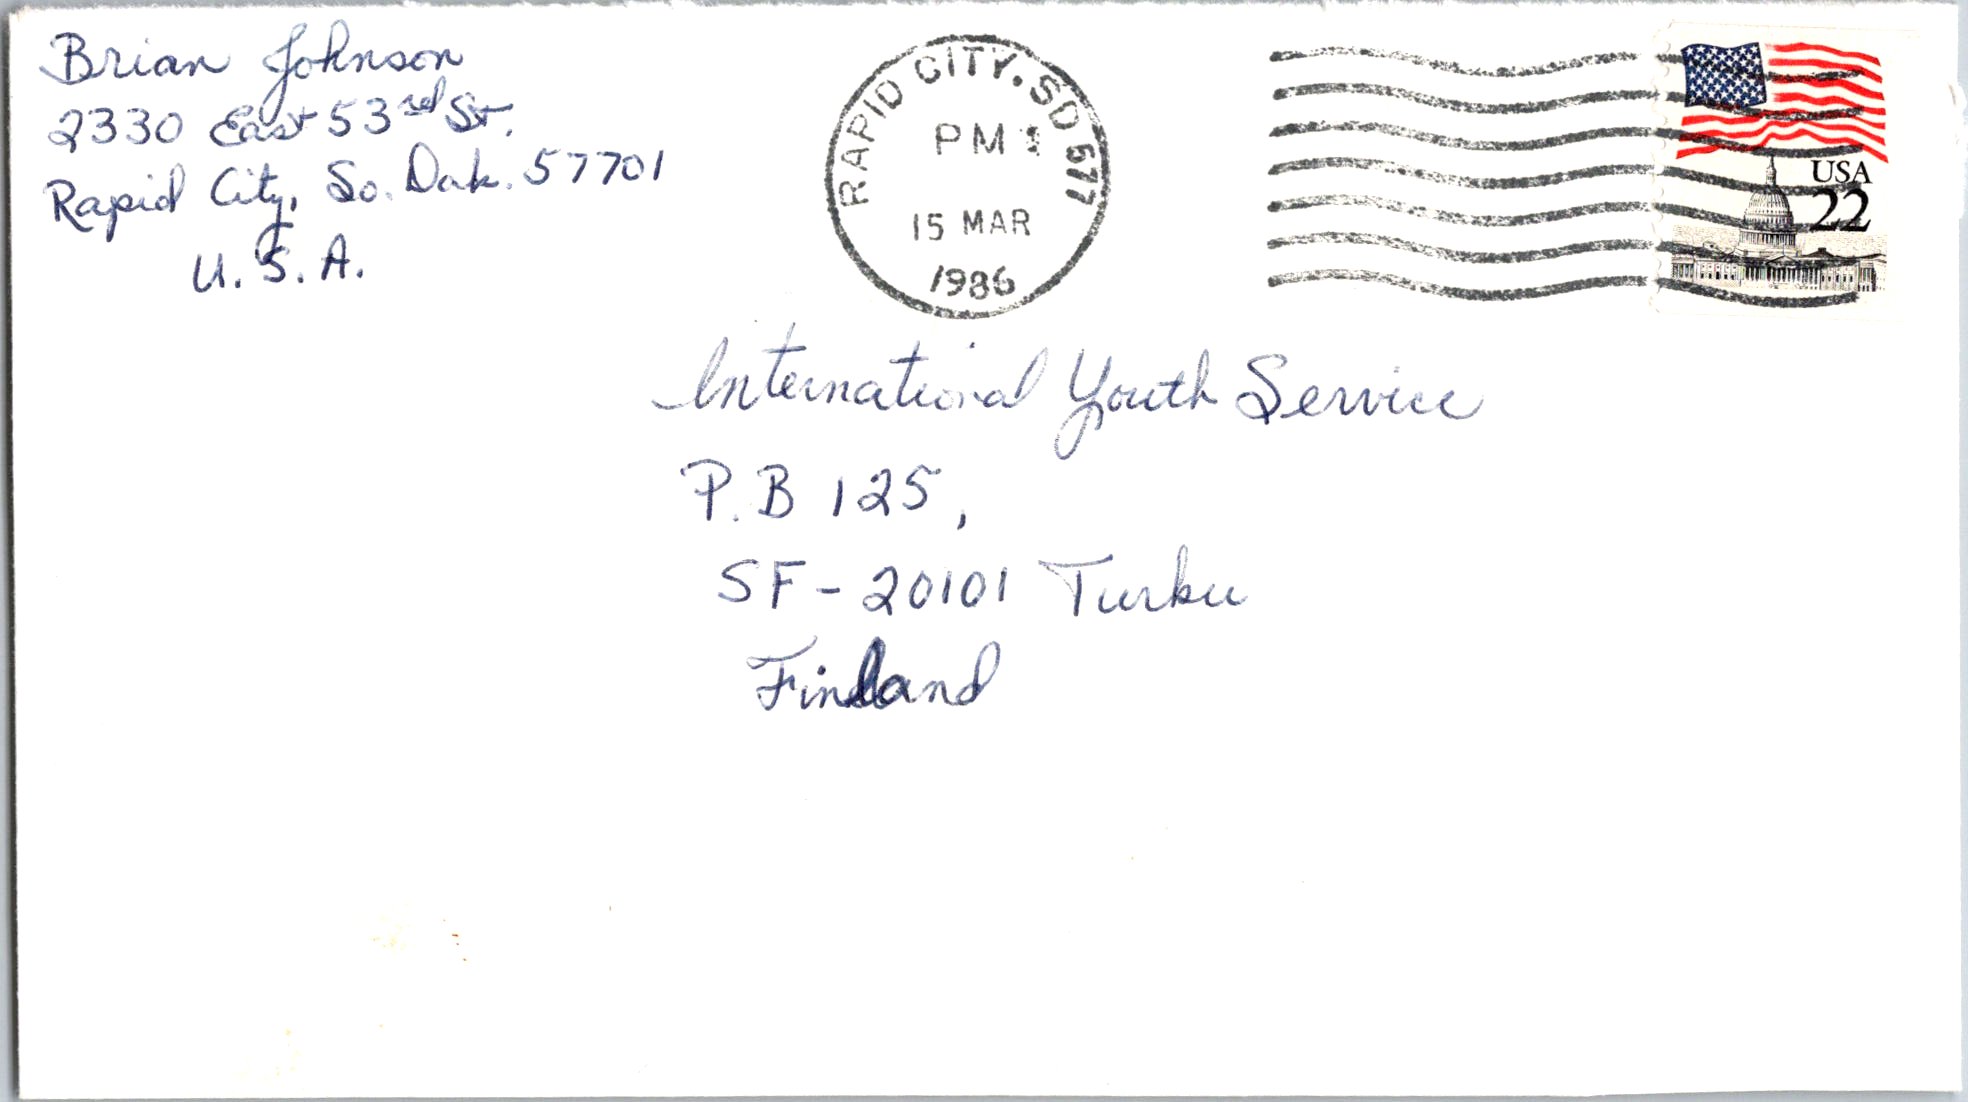 Brian Johnson
2330 East 53rd St.
Rapid City, So. Dak. 57701
U.S.A.
RAPID CITY, SD 577
PM
15 MAR
1986
USA
22
International Youth Service
P.B 125,
SF-20101 Turku
Finland